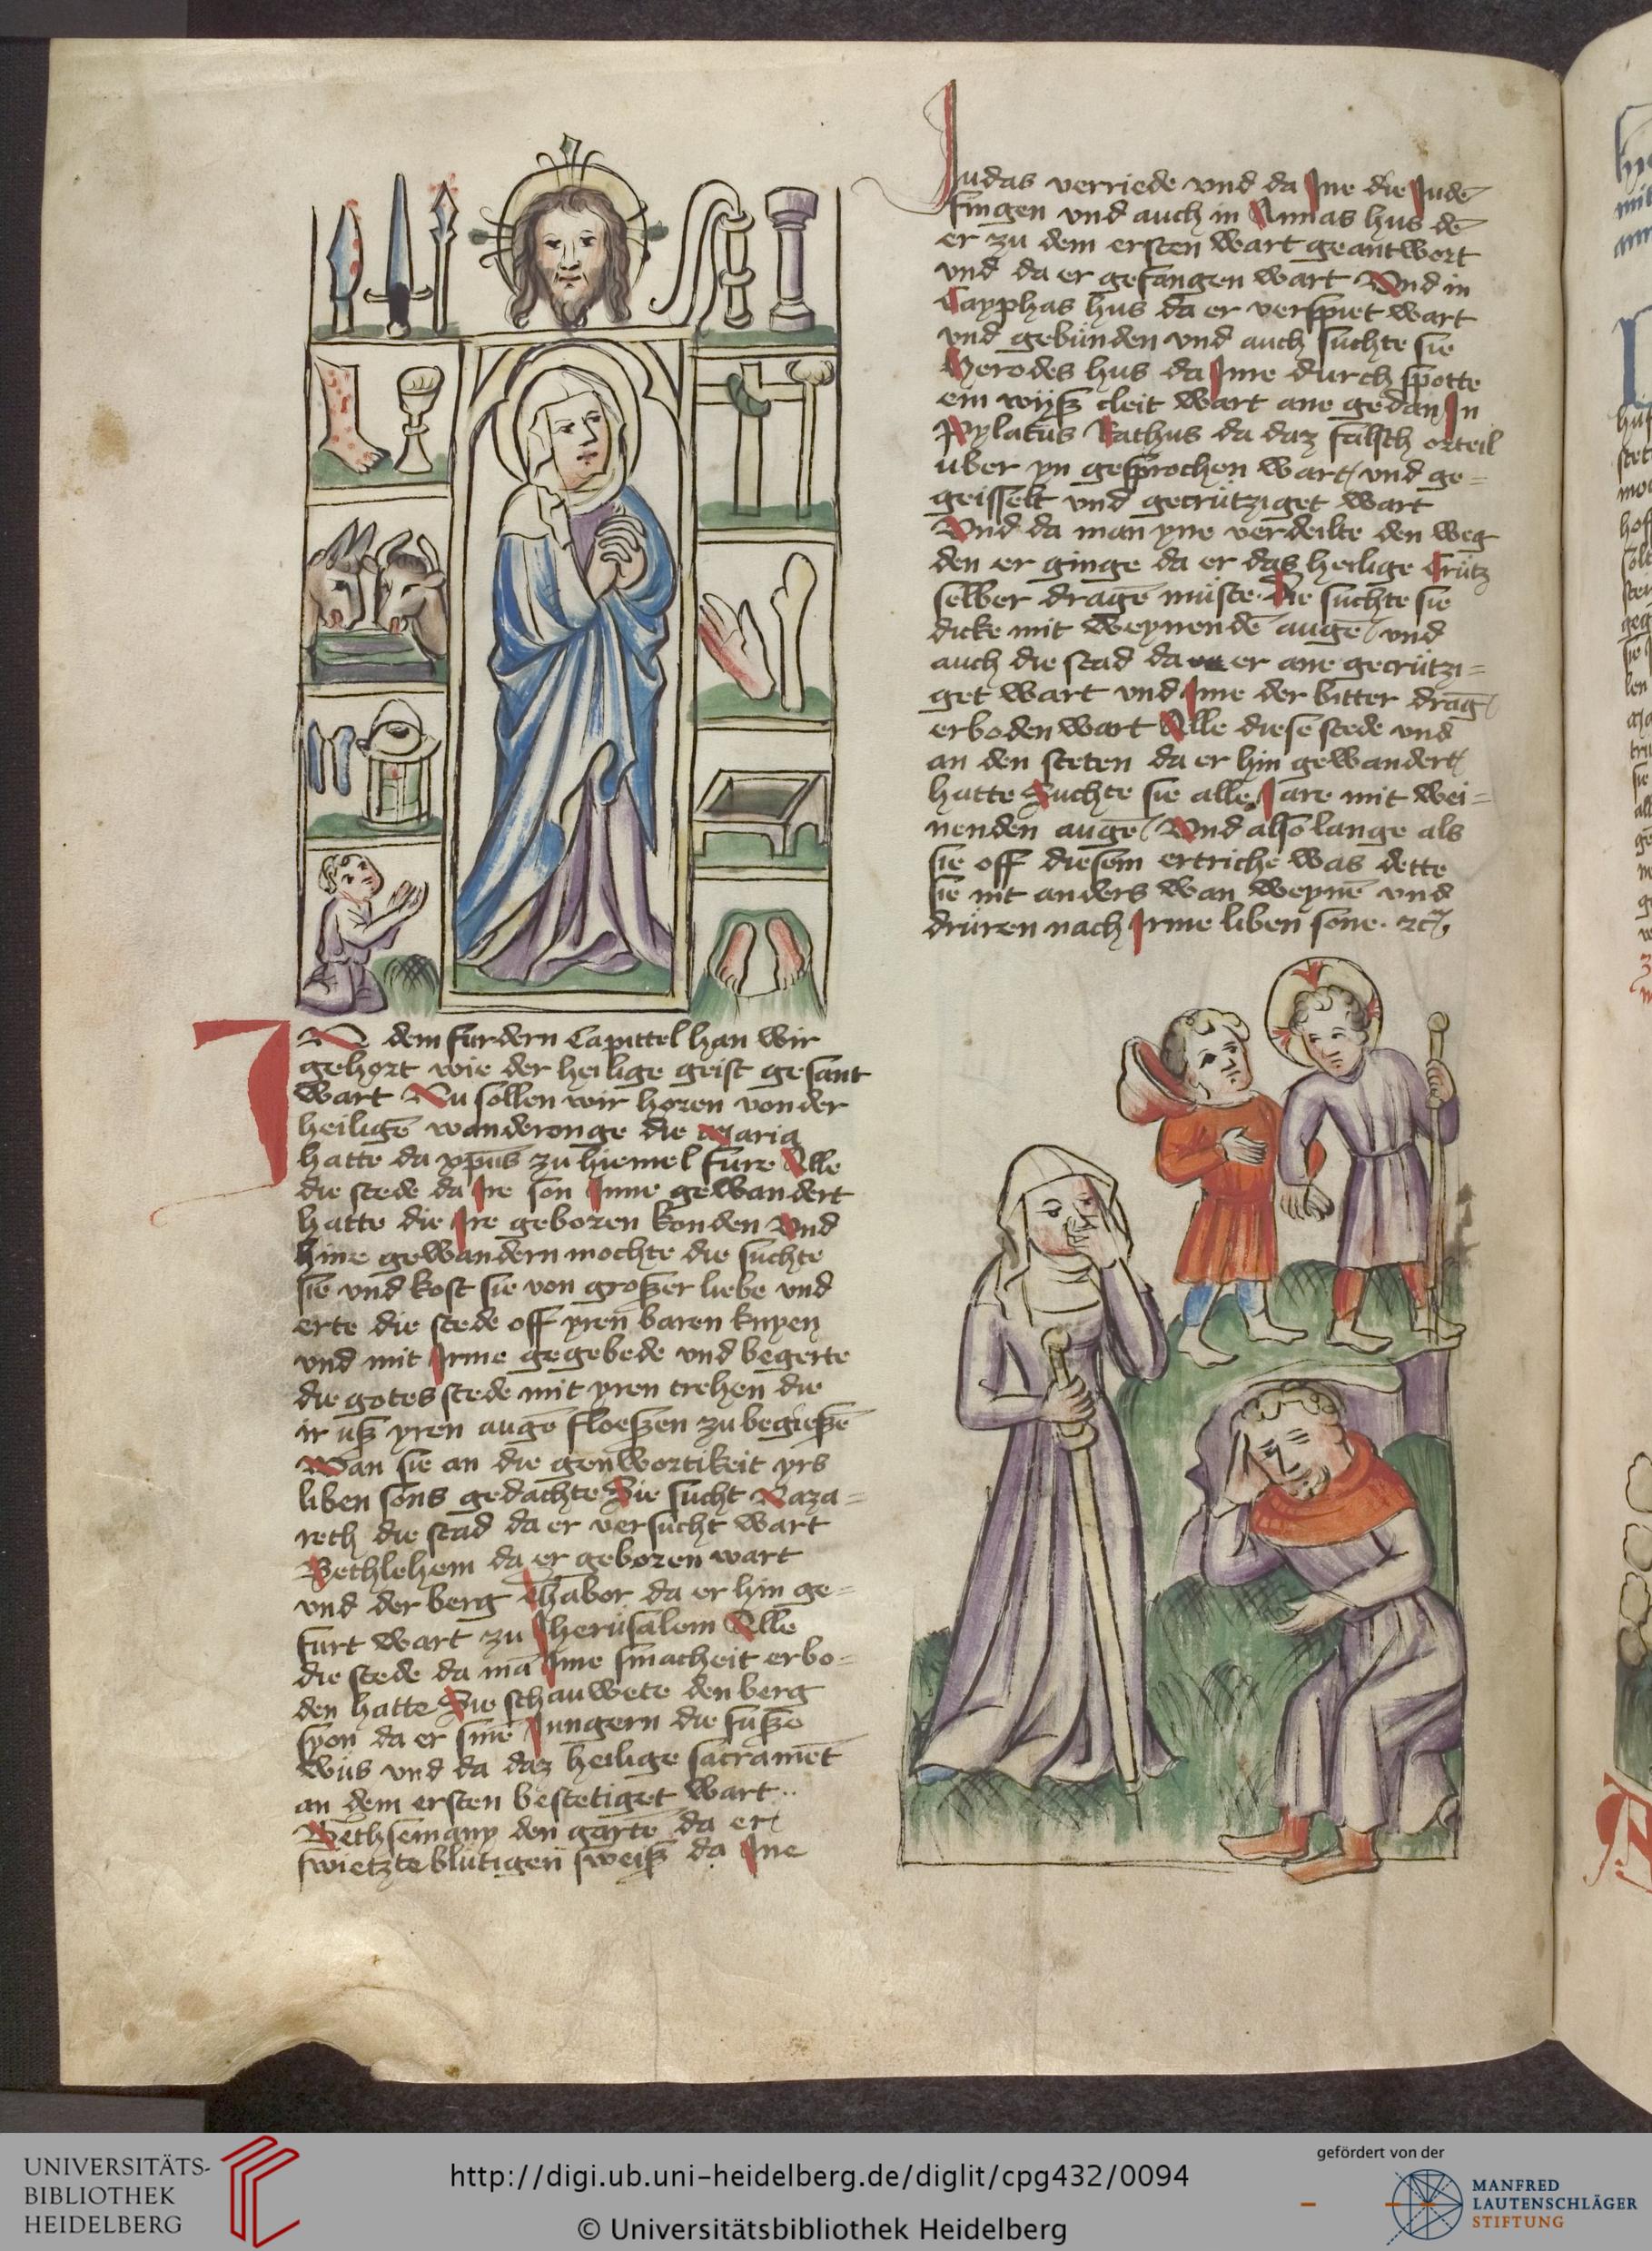 IN dem furdern Capittel han wir
gehort wie der heilige geist gesant
wart Nu sollen wir horen von der
heiligē wanderonge die Maria
hatte da xpūs zu hiemel fure Alle
die stede da Ire son Inne gewandert
hatte die Ire geboren konden Vnd
hine gewandern mochte die suchte
sie vnd kost sie von großer liebe vnd
erte die stede off yren baren knyen
vnd mit Irme gegebede vnd begerte
die gotes stede mit yren trehen die
ir uß yren augē floeßen zu begießē
Wan sie an die genwortikeit yrs
liben sons gedachte Sie sucht Naza=
reth die stad da er versucht wart
Bethlehem da er geboren wart
vnd der berg Thabor da er hin ge=
furt wart zu Iherusalem Alle
die stede da mā Ime smacheit erbo=
den hatte Sie schauwete den berg
syon da er sinē Jungern die fußē
wüs vnd da daz heilige sacramēt
an dem ersten bestetiget wart
Gethsemany den gartē da er
swietzte blutigen sweiß da Ine
Judas verriede vnd da Ine die Judē
fingen vnd auch in Annas hus dē
er zu dem ersten wart geantwort
vnd da er gefangen wart Vnd in
Cayphas hus da er verspiet wart
vnd gebunden vnd auch suchte sie
Herodes hus da Ime durch spotte
ein wyß cleit wart ane gedan In
Pylatus Rathus da daz falsch orteil
uber yn gesprochen wart vnd ge=
geisselt vnd gecrutziget wart
Vnd da man yne verdeilte den weg
den er ginge da er das heilige Crutz
selber dragē muste Die suchte sie
dicke mit weynendē augē vnd
auch die stad da er ane gecrutzi=
get wart vnd Ime der bitter drag
erboden wart Alle diese stede vnd
an den steten da er hin gewandert
hatte Suchte sie alle Jare mit wei=
nenden augē Vnd also lange als
sie off diesem ertriche was dette
sie nit anders wan weynē vnd
druren nach Irme liben sone. zc
UNIVERSITÄTS-
BIBLIOTHEK
HEIDELBERG
http://digi.ub.uni-heidelberg.de/diglit/cpg432/0094
© Universitätsbibliothek Heidelberg
gefördert von der
MANFRED
LAUTENSCHLÄGER
STIFTUNG